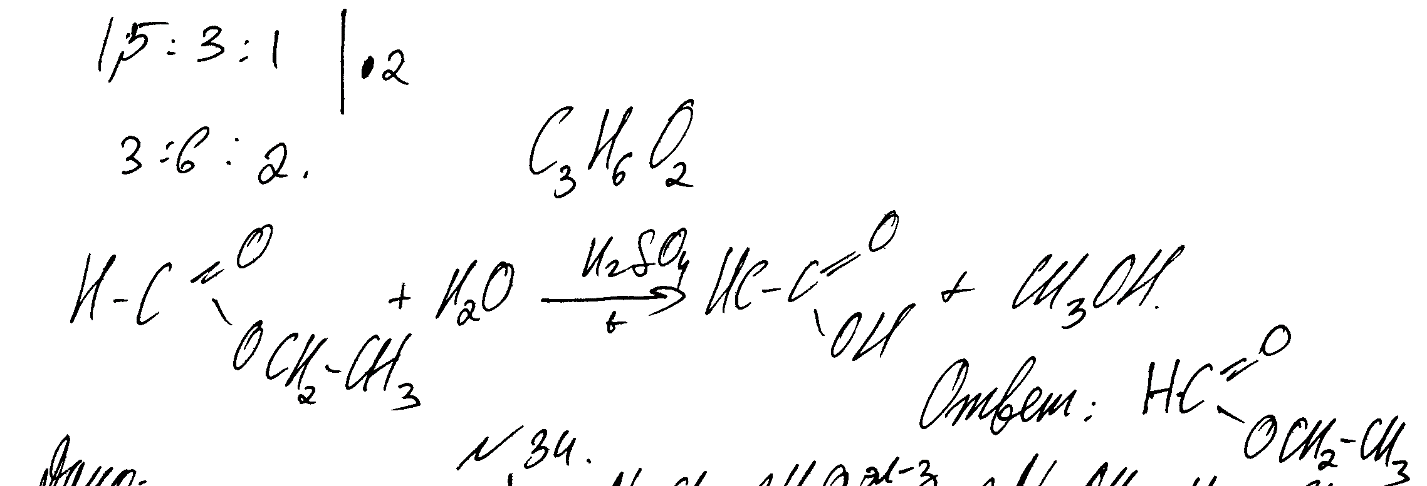 1,5 : 3 : 1 | • 2
3 : 6 : 2. C₃H₆O₂
H-C=O OCH₂-CH₃ + H₂O H₂SO₄ → t HC-C=O OH + CH₃OH.
Ответ: HC=O OCH₂-CH₃
Дано: N 34.